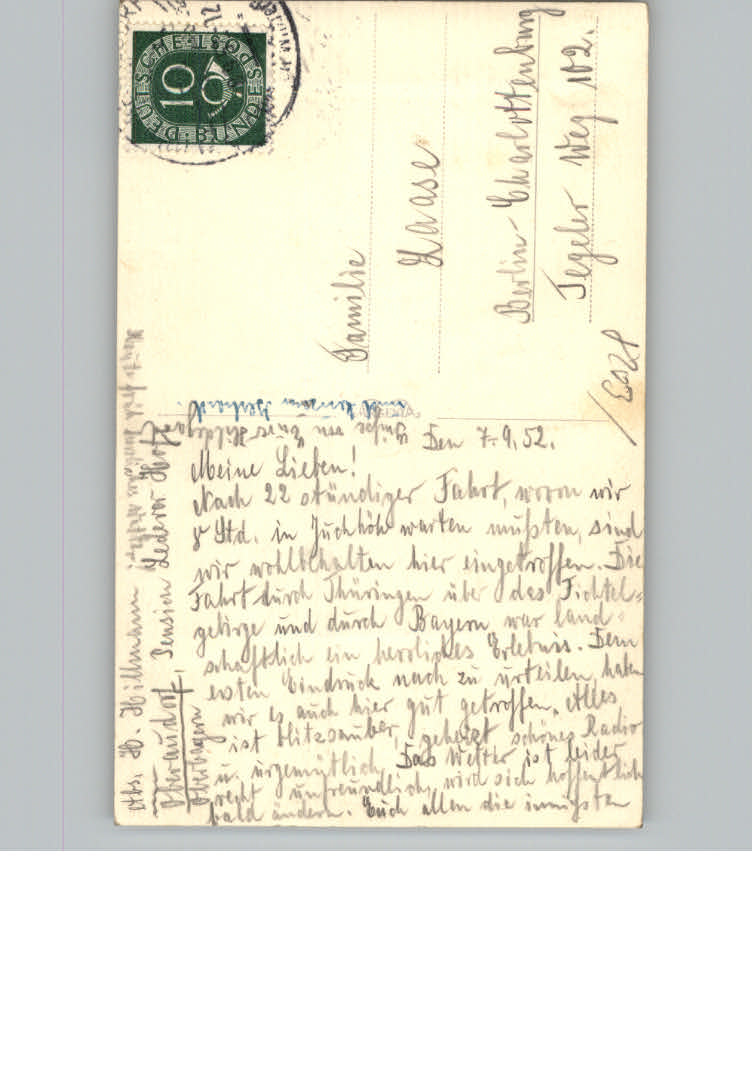 Den 7.9.52.
Meine Lieben!
Nach 22 stündiger Fahrt, wovon wir
8 Std. in Juchhöh warten mußten, sind
wir wohlbehalten hier eingetroffen. Die
Fahrt durch Thüringen über das Fichtel=
gebirge und durch Bayern war land=
schaftlich ein herrliches Erlebnis. Dem
ersten Eindruck nach zu urteilen, haben
wir es auch hier gut getroffen. Alles
ist blitzsauber, geheizt schönes Radio
u. urgemütlich. Das Wetter ist leider
recht unfreundlich, wird sich hoffentlich
bald ändern. Euch allen die innigsten
Grüße von
und
Abs. H. Hillmann
Oberaudorf, Pension Lederer Hof
Oberbayern
DEUTSCHE BUNDESPOST
10
Familie
Haase
Berlin-Charlottenburg
Tegeler Weg 102.